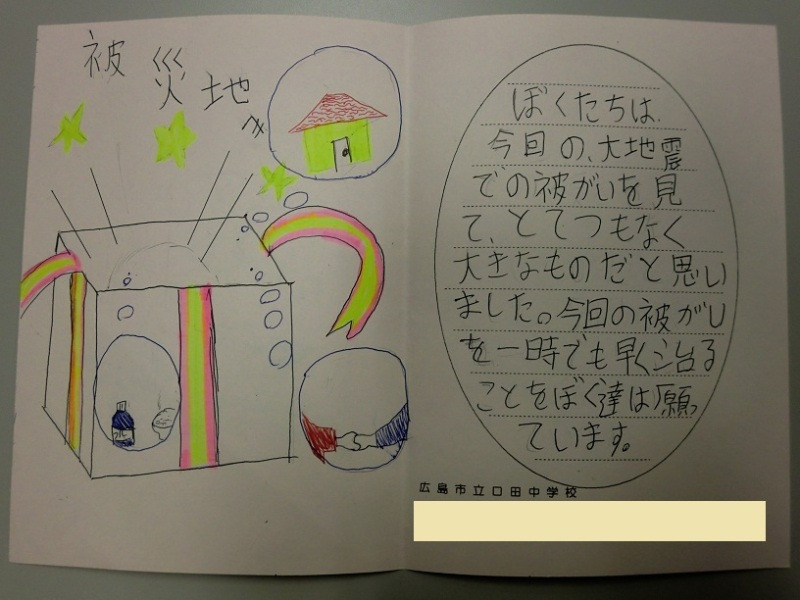 被災地へ
ぼくたちは、
今回の、大地震
での被がいを見
て、とてつもなく
大きなものだと思い
ました。今回の被がい
を一時でも早く治る
ことをぼく達は願っ
ています。
広島市立口田中学校